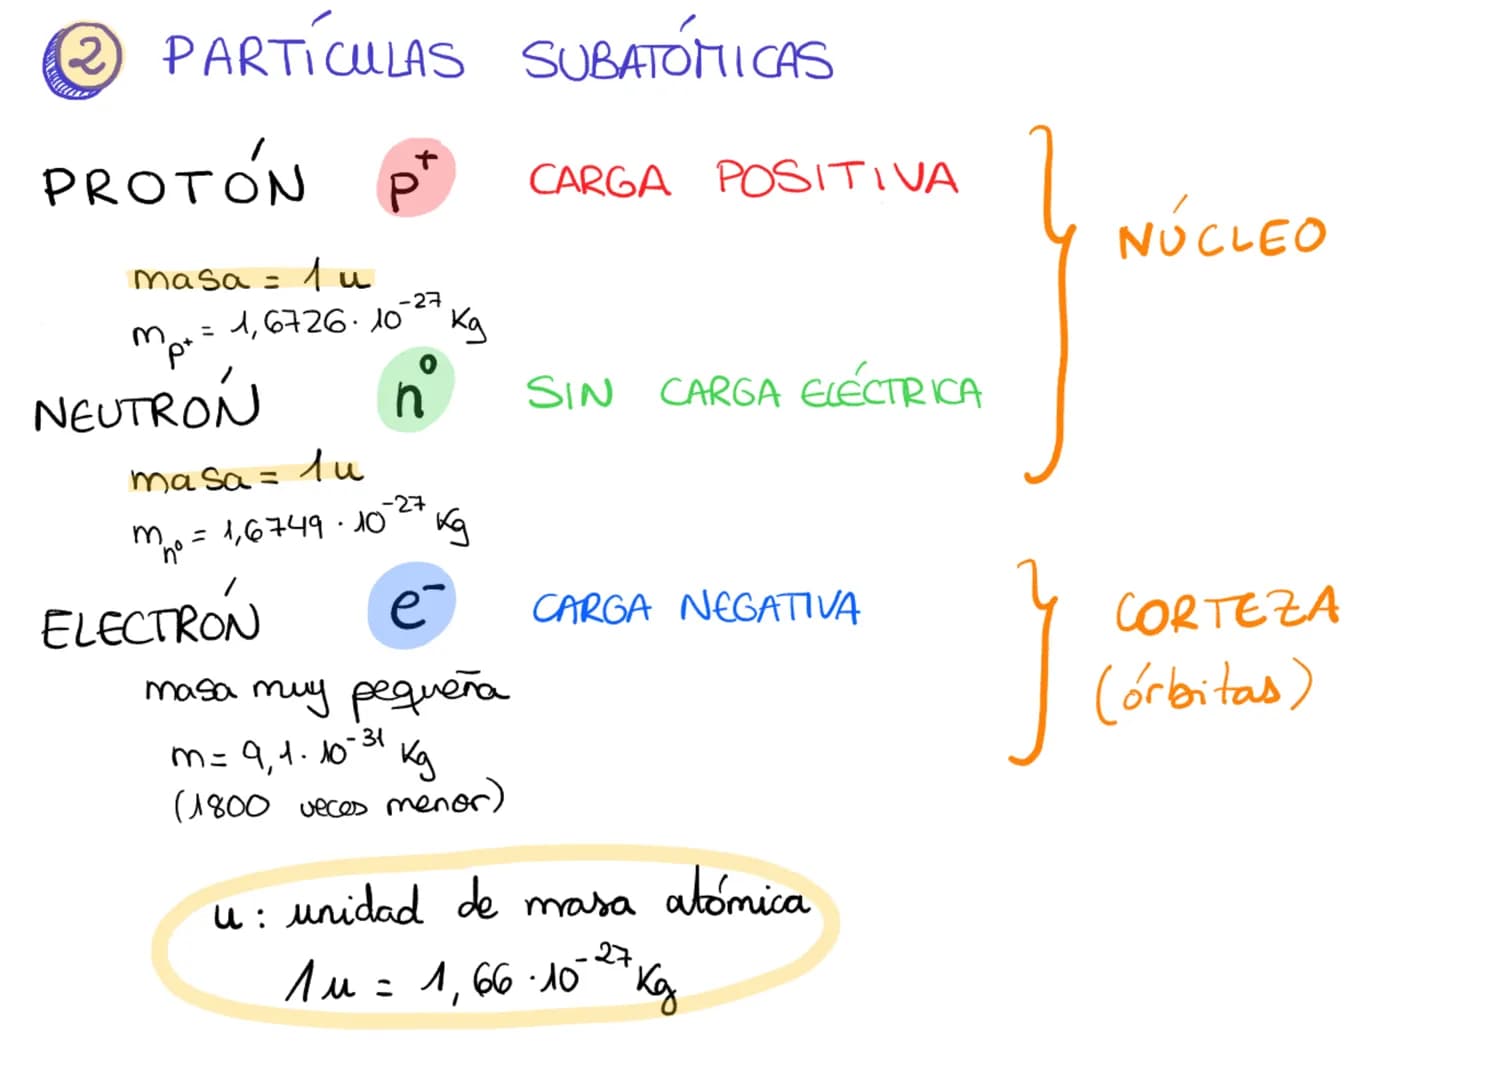 2 PARTÍCULAS SUBATÓMICAS
PROTÓN p⁺ CARGA POSITIVA
NÚCLEO
masa = 1 u
mp⁺ = 1,6726 · 10⁻²⁷ Kg
NEUTRÓN n⁰ SIN CARGA ELÉCTRICA
masa = 1 u
mn⁰ = 1,6749 · 10⁻²⁷ Kg
ELECTRÓN e⁻ CARGA NEGATIVA
CORTEZA
(órbitas)
masa muy pequeña
m = 9,1 · 10⁻³¹ Kg
(1800 veces menor)
u : unidad de masa atómica
1 u = 1,66 · 10⁻²⁷ Kg